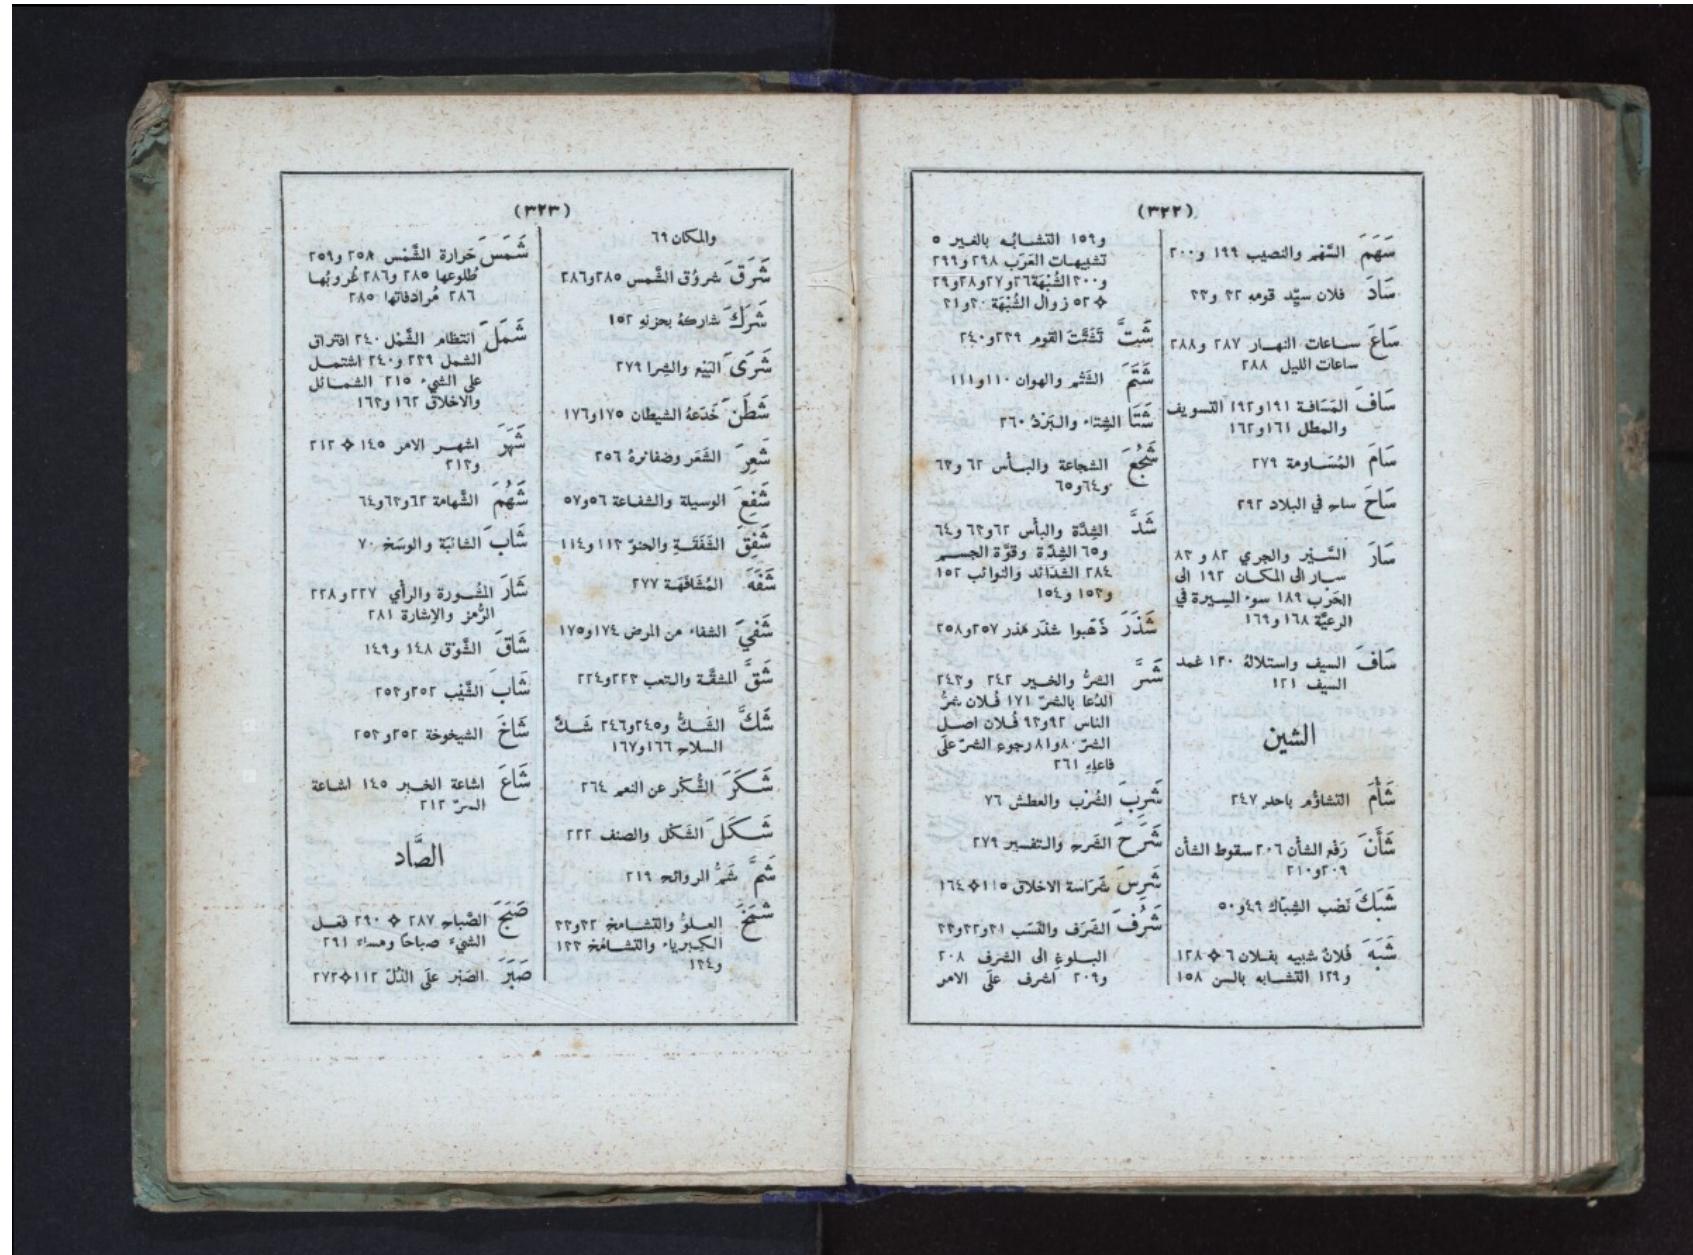 (٣٢٢)
سَهَمَ السَّهْم والنصيب ١٩٩ و٢٠٠
سَادَ فلان سيِّد قومهِ ٢٢ و٢٣
سَاعَ ساعات النهار ٢٨٧ و٢٨٨
ساعات الليل ٢٨٨
سَافَ المَسَافة ١٩١ و١٩٢ التسويف
والمطل ١٦١ و١٦٢
سَامَ المُسَاومة ٢٧٩
سَاحَ ساح في البلاد ٢٩٢
سَارَ السَّيْر والجري ٨٢ و٨٣
سار الى المكان ١٩٢ الى
الحَرْب ١٨٩ سوء السيرة في
الرعيَّة ١٦٨ و١٦٩
سَافَ السيف واستلالهُ ١٢٠ غمد
السيف ١٢١
الشين
شَأَمَ التشاؤم باحد ٢٤٧
شَأَنَ رَفْع الشأن ٢٠٦ سقوط الشأن
٢٠٩ و٢١٠
شَبَكَ نَصْب الشِبَاك ٤٩ و٥٠
شَبَهَ فُلانٌ شبيه بفلان ٦ ❖ ١٢٨
و١٢٩ التشابه بالسن ١٥٨
و١٥٩ التشابُه بالغير ٥
تشبيهات العَرَب ٢٩٨ و٢٩٩
و٣٠٠ الشُبْهَة ٢٦ و٢٧ و٢٨ و٢٩
❖ ٥٢ زوال الشُبْهَة ٢٠ و٢١
شَتَّ تَشَتَّتَ القوم ٢٣٩ و٢٤٠
شَتَمَ الشَتْم والهوان ١١٠ و١١١
شَتَا الشِتاء والبَرْدُ ٢٦٠
شَجُعَ الشجاعة والبأس ٦٢ و٦٣
و٦٤ و٦٥
شَدَّ الشِدَّة والبأس ٦٢ و٦٣ و٦٤
و٦٥ الشِدَّة وقوَّة الجسم
٢٨٤ الشدائد والنوائب ١٥٢
و١٥٣ و١٥٤
شَذَرَ ذَهَبوا شذَر مَذر ٢٥٧ و٢٥٨
شَرَّ الشرُّ والخير ٢٤٢ و٢٤٣
الدُعا بالشرّ ١٧١ فُلان شرُّ
الناس ٩٢ و٩٣ فُلان اصل
الشرّ ٨٠ و٨١ رجوع الشرّ علَى
فاعلهِ ٢٦١
شَرِبَ الشُرْب والعطش ٧٦
شَرَحَ الشَرح والتفسير ٢٧٩
شَرِسَ شَرَاسة الاخلاق ١١٥ ❖ ١٦٤
شَرُفَ الشَرَف والنَسَب ٢١ و٢٢ و٢٣
البلوغ الى الشرف ٢٠٨
و٢٠٩ اشرف علَى الامر
(٣٢٣)
والمكان ٦٩
شَرَقَ شروُق الشَّمس ٢٨٥ و٢٨٦
شَرَكَ شاركهُ بحزنهِ ١٥٢
شَرَى البَيْع والشِرا ٢٧٩
شَطَنَ خَدَعهُ الشيطان ١٧٥ و١٧٦
شَعِرَ الشَعَر وضفائرهُ ٢٥٦
شَفِعَ الوسيلة والشفاعة ٥٦ و٥٧
شَفِقَ الشَفَقَة والحنوّ ١١٣ و١١٤
شَفَهَ المُشَافَهَة ٢٧٧
شَفِيَ الشفاء من المرض ١٧٤ و١٧٥
شَقَّ المشقَّة والتعب ٢٢٣ و٢٢٤
شَكَّ الشَكُّ و٢٤٥ و٢٤٦ شَكّ
السلاح ١٦٦ و١٦٧
شَكَرَ الشُكْر عن النعم ٢٦٤
شَكَلَ الشَكْل والصنف ٢٢٢
شَمَّ شَمُّ الروائح ٢١٩
شَمَخَ العلوُّ والتشامخ ٢٢ و٢٣
الكبرياء والتشامُخ ١٣٣
و١٣٤
شَمَسَ حَرارة الشَّمْس ٢٥٨ و٢٥٩
طُلوعها ٢٨٥ و٢٨٦ غُروبُها
٢٨٦ مُرادفاتها ٢٨٥
شَمَلَ انتظام الشَّمْل ٢٤٠ افتراق
الشمل ٢٣٩ و٢٤٠ اشتمل
على الشيء ٢١٥ الشمائل
والاخلاق ١٦٢ و١٦٣
شَهَرَ اشهر الامر ١٤٥ ❖ ٢١٢
و٢١٣
شَهُمَ الشَّهامة ٦٢ و٦٣ و٦٤
شَابَ الشائبَة والوسَخ ٧٠
شَارَ المَشُورة والرأي ٢٢٧ و٢٢٨
الرَّمز والإِشارة ٢٨١
شَاقَ الشَّوْق ١٤٨ و١٤٩
شَابَ الشَّيْب ٢٥٢ و٢٥٣
شَاخَ الشيخوخة ٢٥٢ و٢٥٣
شَاعَ اشاعة الخبر ١٤٥ اشاعة
السرّ ٢١٢
الصَّاد
صَبَحَ الصَّباح ٢٨٧ ❖ ٢٩٠ فعل
الشيء صباحًا ومساء ٢٩١
صَبَرَ الصَبْر علَى الذُلّ ١١٢ ❖ ٢٧٢